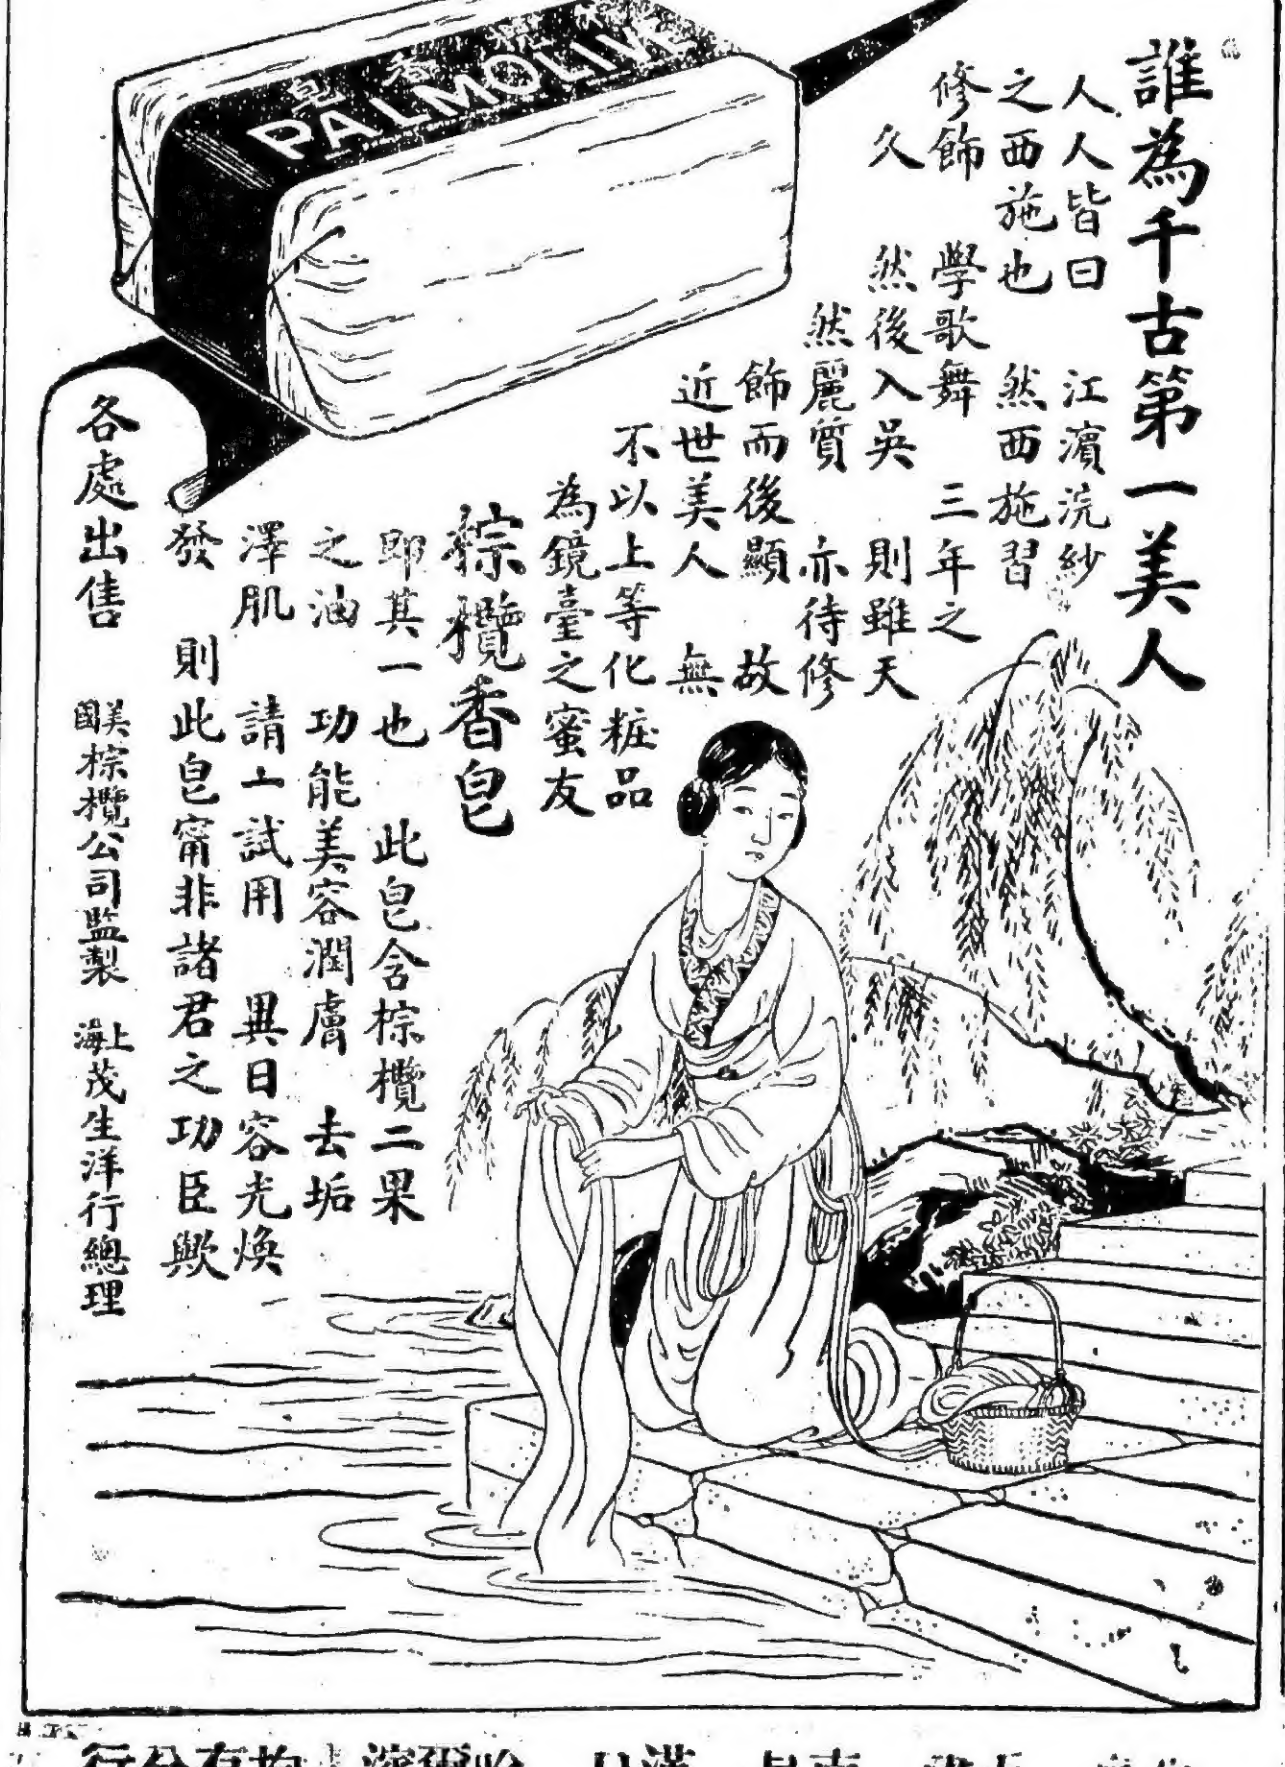 誰為千古第一美人
人人皆曰 江濱浣紗
之西施也 然西施習
修飾 學歌舞 三年之
久 然後入吳 則雖天
然麗質 亦待修
飾而後顯 故
近世美人 無
不以上等化粧品
為鏡臺之蜜友
棕欖香皂
即其一也 此皂含棕欖二果
之油 功能美容潤膚 去垢
澤肌 請一試用 異日容光煥
發 則此皂甯非諸君之功臣歟
各處出售 美國棕欖公司監製 上海茂生洋行總理
棕欖香皂
PALMOLIVE